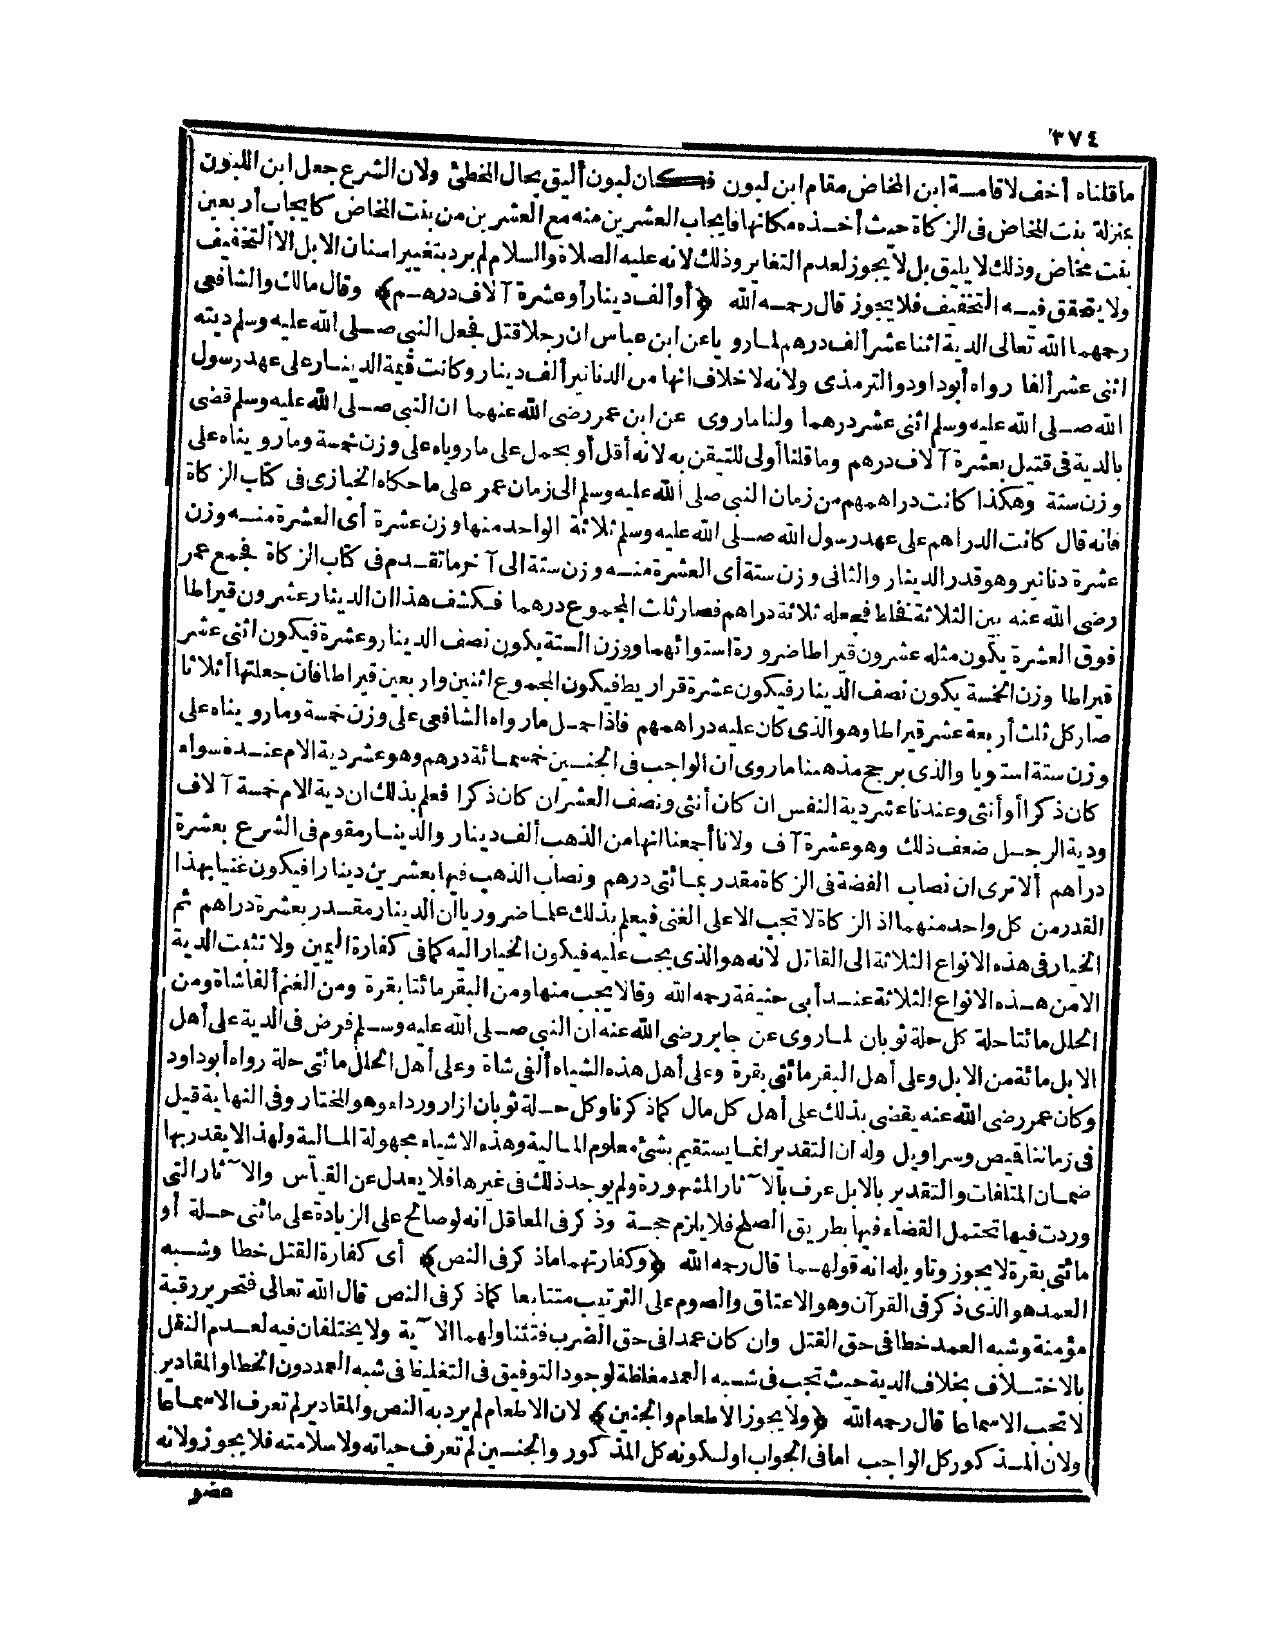 ٣٧٤
ما قلناه أخف لاقامة ابن المخاض مقام ابن لبون فكان لبون أليق بحال المخطئ ولان الشرع جعل ابن اللبون
بمنزلة بنت المخاض فى الزكاة حيث أخذه مكانها فايجاب العشرين منه مع العشرين من بنت المخاض كايجاب أربعين
بنت مخاض وذلك لا يليق بل لا يجوز لعدم التغاير وذلك لانه عليه الصلاة والسلام لم يرد بتغيير اسنان الابل الا التخفيف
ولا يتحقق فيه التخفيف فلا يجوز قال رحمه الله ﴿أو ألف دينار أو عشرة آلاف درهم﴾ وقال مالك والشافعى
رحمهما الله تعالى الدية اثنا عشر ألف درهم لما رويا عن ابن عباس ان رجلا قتل فجعل النبى صلى الله عليه وسلم ديته
اثنى عشر ألفا رواه أبو داود والترمذى ولانه لا خلاف انها من الدنانير ألف دينار وكانت قيمة الدينار على عهد رسول
الله صلى الله عليه وسلم اثنى عشر درهما ولنا ما روى عن ابن عمر رضى الله عنهما ان النبى صلى الله عليه وسلم قضى
بالدية فى قتيل بعشرة آلاف درهم وما قلنا أولى للتيقن به لانه أقل أو يحمل على ما روياه على وزن خمسة وما رويناه على
وزن ستة وهكذا كانت دراهمهم من زمان النبى صلى الله عليه وسلم الى زمان عمر على ما حكاه الخبازى فى كتاب الزكاة
فانه قال كانت الدراهم على عهد رسول الله صلى الله عليه وسلم ثلاثة الواحد منها وزن عشرة أى العشرة منه وزن
عشرة دنانير وهو قدر الدينار والثانى وزن ستة أى العشرة منه وزن ستة الى آخر ما تقدم فى كتاب الزكاة فجمع عمر
رضى الله عنه بين الثلاثة فخلط فجعله ثلاثة دراهم فصار ثلث المجموع درهما فكشف هذا ان الدينار عشرون قيراطا
فوق العشرة يكون مثله عشرون قيراطا ضرورة استوائهما ووزن الستة يكون نصف الدينار وعشرة فيكون اثنى عشر
قيراطا وزن الخمسة يكون نصف الدينار فيكون عشرة قراريط فيكون المجموع اثنين وأربعين قيراطا فان جعلتها أثلاثا
صار كل ثلث أربعة عشر قيراطا وهو الذى كان عليه دراهمهم فاذا حمل ما رواه الشافعى على وزن خمسة وما رويناه على
وزن ستة استويا والذى يرجح مذهبنا ما روى ان الواجب فى الجنين خمسمائة درهم وهو عشر دية الام عنده سواء
كان ذكرا أو أنثى وعندنا عشر دية النفس ان كان أنثى ونصف العشر ان كان ذكرا فعلم بذلك ان دية الام خمسة آلاف
ودية الرجل ضعف ذلك وهو عشرة آف ولانا أجمعنا انها من الذهب ألف دينار والدينار مقوم فى الشرع بعشرة
دراهم ألا ترى ان نصاب الفضة فى الزكاة مقدر بمائتى درهم ونصاب الذهب فيها بعشرين دينارا فيكون غنيا بهذا
القدر من كل واحد منهما اذ الزكاة لا تجب الا على الغنى فيعلم بذلك علما ضروريا أن الدينار مقدر بعشرة دراهم ثم
الخيار فى هذه الانواع الثلاثة الى القاتل لانه هو الذى يجب عليه فيكون الخيار اليه كما فى كفارة اليمين ولا تثبت الدية
الا من هذه الانواع الثلاثة عند أبى حنيفة رحمه الله وقالا يجب منها ومن البقر مائتا بقرة ومن الغنم ألفا شاة ومن
الحلل مائتا حلة كل حلة ثوبان لما روى عن جابر رضى الله عنه أن النبى صلى الله عليه وسلم فرض فى الدية على أهل
الابل مائة من الابل وعلى أهل البقر مائتى بقرة وعلى أهل هذه الشياه ألفى شاة وعلى أهل الحلل مائتى حلة رواه أبو داود
وكان عمر رضى الله عنه يقضى بذلك على أهل كل مال كما ذكرنا وكل حلة ثوبان ازار ورداء وهو المختار وفى النهاية قيل
فى زماننا قيص وسراويل وله ان التقدير انما يستقيم بشئ معلوم المالية وهذه الاشياء مجهولة المالية ولهذا لا يقدر بها
ضمان المتلفات والتقدير بالابل عرف بالآثار المشهورة ولم يوجد ذلك فى غيرها فلا يعدل عن القياس والآثار التى
وردت فيها تحتمل القضاء فيها بطريق الصلح فلا يلزم حجة وذكر فى المعاقل انه لو صالح على الزيادة على مائتى حلة أو
مائتى بقرة لا يجوز وتاويله انه قولهما قال رحمه الله ﴿وكفارتهما ما ذكر فى النص﴾ أى كفارة القتل خطا وشبه
العمد هو الذى ذكر فى القرآن وهو الاعتاق والصوم على الترتيب متتابعا كما ذكر فى النص قال الله تعالى فتحرير رقبة
مؤمنة وشبه العمد خطا فى حق القتل وان كان عمدا فى حق الضرب فتتناولهما الآية ولا يختلفان فيه لعدم النقل
بالاختلاف بخلاف الدية حيث تجب فى شبه العمد مغلظة لوجود التوفيق فى التغليظ فى شبه العمد دون الخطا والمقادير
لا تجب الا سماعا قال رحمه الله ﴿ولا يجوز الاطعام والجنين﴾ لان الاطعام لم يرد به النص والمقادير لم تعرف الا سماعا
ولان المذكور كل الواجب اما فى الجواب او لكونه كل المذكور والجنين لم تعرف حياته ولا سلامته فلا يجوز ولانه
عضو